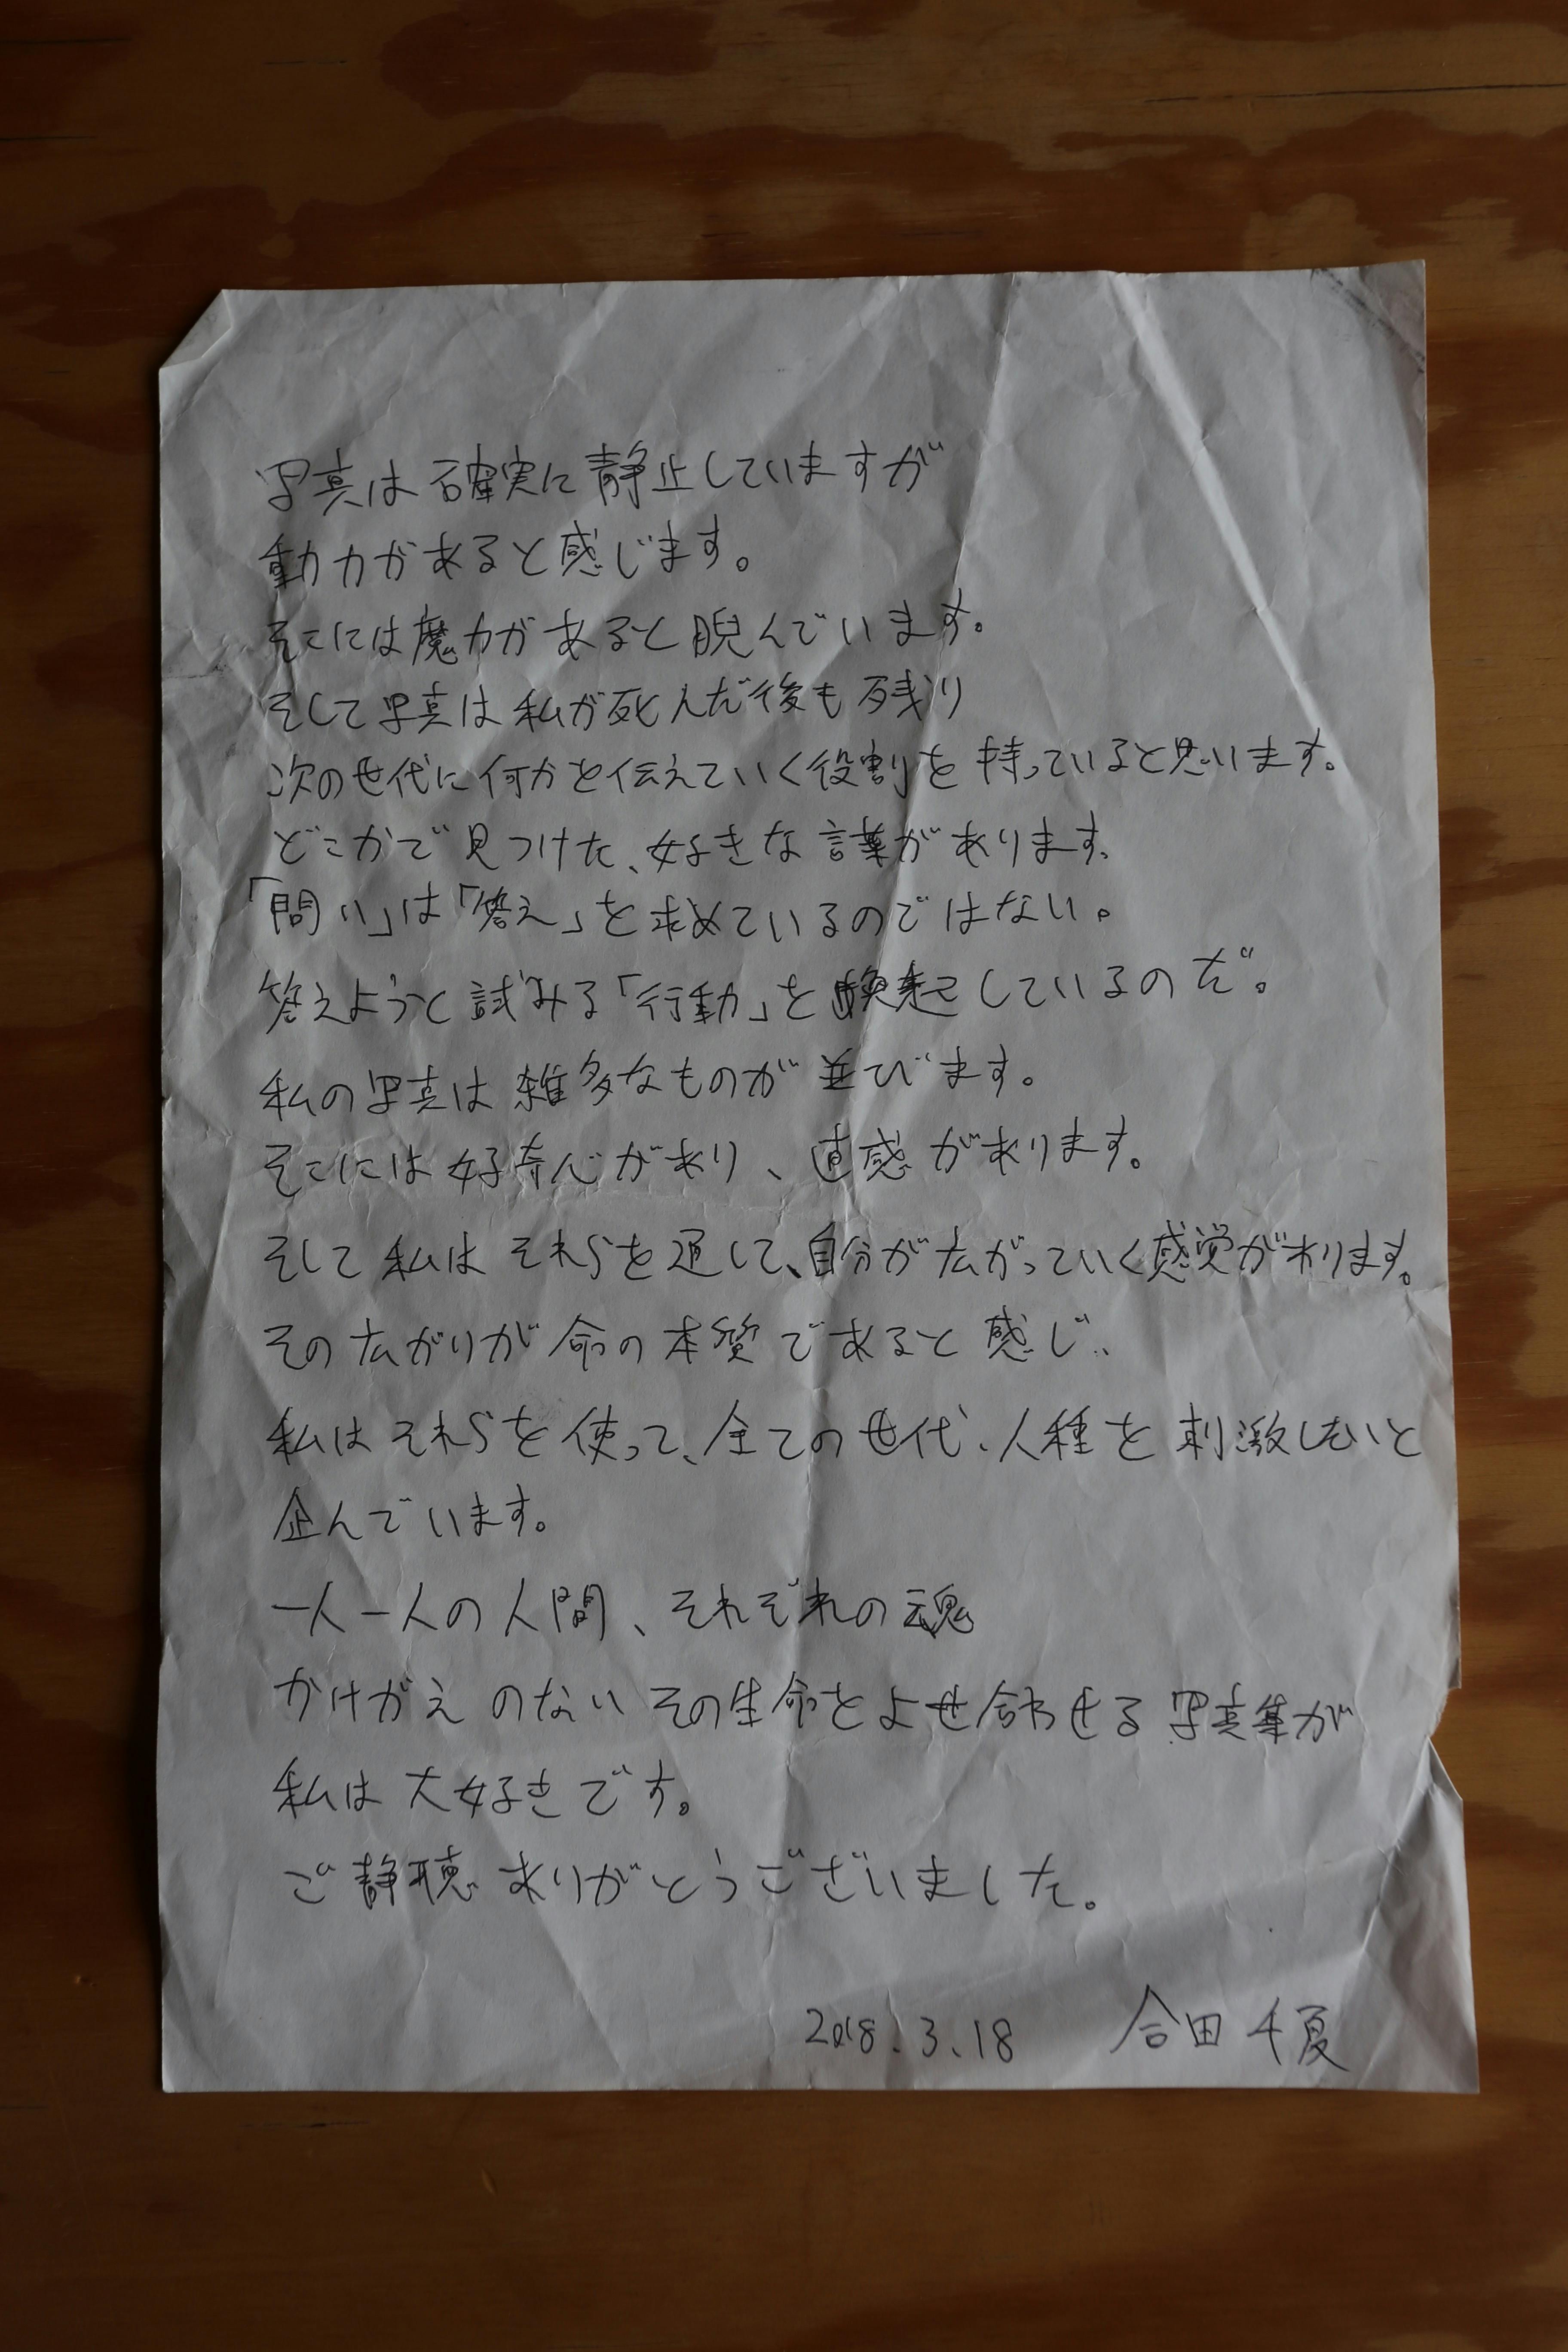 写真は確実に静止していますが
動力があると感じます。
そこには魔力があると睨んでいます。
そして写真は私が死んだ後も残り
次の世代に何かを伝えていく役割を持っていると思います。
どこかで見つけた、好きな言葉があります。
「問い」は「答え」を求めているのではない。
答えようと試みる「行動」を喚起しているのだ。
私の写真は雑多なものが並びます。
そこには好奇心があり、直感があります。
そして私はそれらを通して、自分が広がっていく感覚があります。
その広がりが命の本質であると感じ、
私はそれらを使って、全ての世代、人種を刺激したいと
企んでいます。
一人一人の人間、それぞれの魂
かけがえのないその生命をよせ合わせる写真集が
私は大好きです。
ご静聴ありがとうございました。
2018.3.18 合田千夏